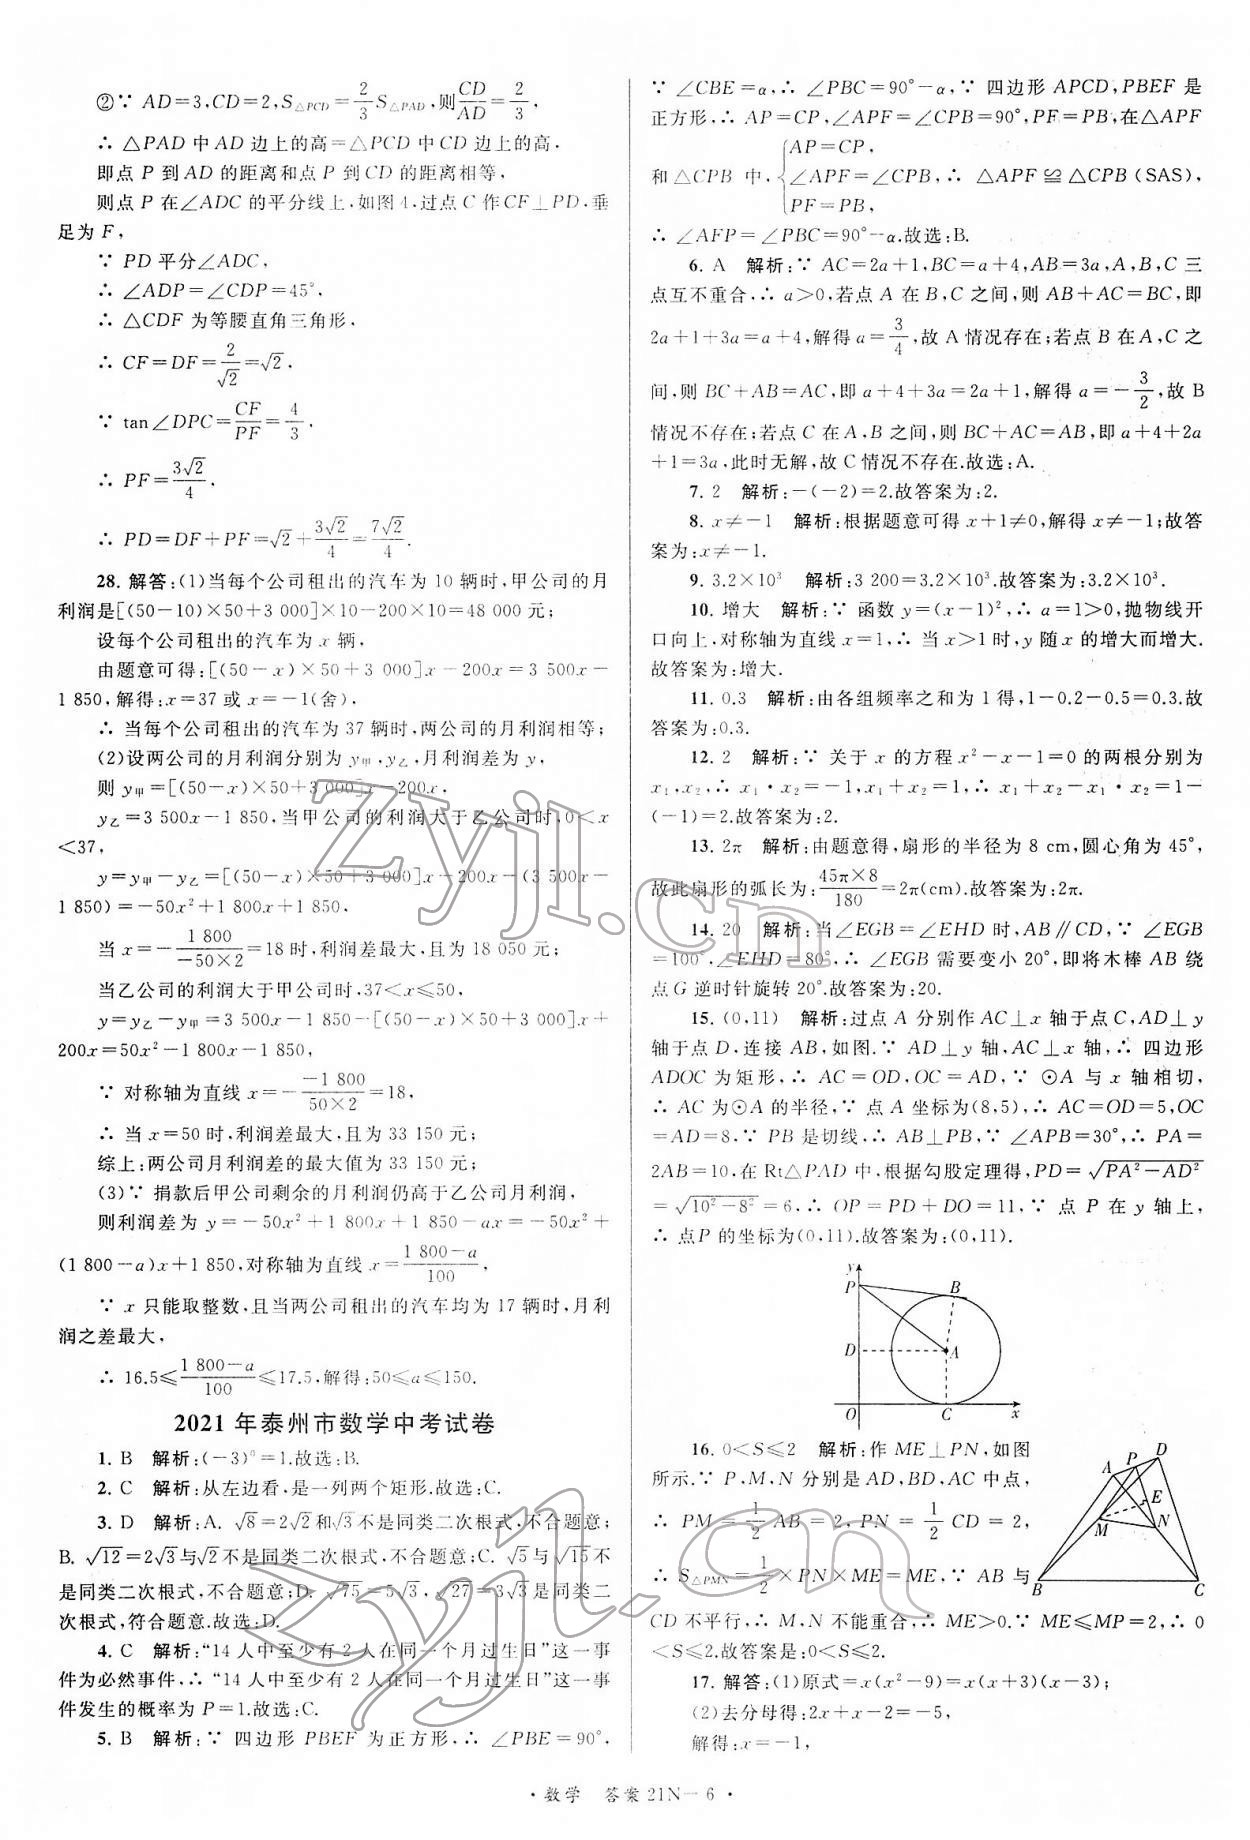 ②∵ AD=3,CD=2,S△PCD=2/3 S△PAD,则CD/AD=2/3,
∴ △PAD 中 AD 边上的高=△PCD 中 CD 边上的高,
即点 P 到 AD 的距离和点 P 到 CD 的距离相等,
则点 P 在∠ADC 的平分线上,如图 4,过点 C 作 CF⊥PD,垂
足为 F,
∵ PD 平分∠ADC,
∴ ∠ADP=∠CDP=45°,
∴ △CDF 为等腰直角三角形,
∴ CF=DF=2/√2=√2,
∵ tan∠DPC=CF/PF=4/3,
∴ PF=3√2/4,
∴ PD=DF+PF=√2+3√2/4=7√2/4.
28. 解答:(1)当每个公司租出的汽车为 10 辆时,甲公司的月
利润是[(50-10)×50+3 000]×10-200×10=48 000 元;
设每个公司租出的汽车为 x 辆,
由题意可得:[(50-x)×50+3 000]x-200x=3 500x-
1 850,解得:x=37 或 x=-1(舍),
∴ 当每个公司租出的汽车为 37 辆时,两公司的月利润相等;
(2)设两公司的月利润分别为 y甲,y乙,月利润差为 y,
则 y甲=[(50-x)×50+3 000]x-200x,
y乙=3 500x-1 850,当甲公司的利润大于乙公司时,0<x
<37,
y=y甲-y乙=[(50-x)×50+3 000]x-200x-(3 500x-
1 850)=-50x²+1 800x+1 850,
当 x=-1 800/(-50×2)=18 时,利润差最大,且为 18 050 元;
当乙公司的利润大于甲公司时,37<x≤50,
y=y乙-y甲=3 500x-1 850-[(50-x)×50+3 000]x+
200x=50x²-1 800x-1 850,
∵ 对称轴为直线 x=-(-1 800)/(50×2)=18,
∴ 当 x=50 时,利润差最大,且为 33 150 元;
综上:两公司月利润差的最大值为 33 150 元;
(3)∵ 捐款后甲公司剩余的月利润仍高于乙公司月利润,
则利润差为 y=-50x²+1 800x+1 850-ax=-50x²+
(1 800-a)x+1 850,对称轴为直线 x=(1 800-a)/100,
∵ x 只能取整数,且当两公司租出的汽车均为 17 辆时,月利
润之差最大,
∴ 16.5≤(1 800-a)/100≤17.5,解得:50≤a≤150.
2021 年泰州市数学中考试卷
1. B 解析:(-3)⁰=1.故选:B.
2. C 解析:从左边看,是一列两个矩形.故选:C.
3. D 解析:A. √8=2√2和√3不是同类二次根式,不合题意;
B. √12=2√3与√2不是同类二次根式,不合题意;C. √5与√15不
是同类二次根式,不合题意;D. √75=5√3,√27=3√3是同类二
次根式,符合题意.故选:D.
4. C 解析:“14 人中至少有 2 人在同一个月过生日”这一事
件为必然事件,∴ “14 人中至少有 2 人在同一个月过生日”这一事
件发生的概率为 P=1.故选:C.
5. B 解析:∵ 四边形 PBEF 为正方形,∴ ∠PBE=90°,
∵ ∠CBE=α,∴ ∠PBC=90°-α,∵ 四边形 APCD,PBEF 是
正方形,∴ AP=CP,∠APF=∠CPB=90°,PF=PB,在△APF
和△CPB 中,{AP=CP, ∠APF=∠CPB, PF=PB,∴ △APF≌△CPB(SAS),
∴ ∠AFP=∠PBC=90°-α.故选:B.
6. A 解析:∵ AC=2a+1,BC=a+4,AB=3a,A,B,C 三
点互不重合,∴ a>0,若点 A 在 B,C 之间,则 AB+AC=BC,即
2a+1+3a=a+4,解得 a=3/4,故 A 情况存在;若点 B 在 A,C 之
间,则 BC+AB=AC,即 a+4+3a=2a+1,解得 a=-3/2,故 B
情况不存在;若点 C 在 A,B 之间,则 BC+AC=AB,即 a+4+2a
+1=3a,此时无解,故 C 情况不存在.故选:A.
7. 2 解析:-(-2)=2.故答案为:2.
8. x≠-1 解析:根据题意可得 x+1≠0,解得 x≠-1;故答
案为:x≠-1.
9. 3.2×10³ 解析:3 200=3.2×10³.故答案为:3.2×10³.
10. 增大 解析:∵ 函数 y=(x-1)²,∴ a=1>0,抛物线开
口向上,对称轴为直线 x=1,∴ 当 x>1 时,y 随 x 的增大而增大.
故答案为:增大.
11. 0.3 解析:由各组频率之和为 1 得,1-0.2-0.5=0.3.故
答案为:0.3.
12. 2 解析:∵ 关于 x 的方程 x²-x-1=0 的两根分别为
x₁,x₂,∴ x₁·x₂=-1,x₁+x₂=1,∴ x₁+x₂-x₁·x₂=1-
(-1)=2.故答案为:2.
13. 2π 解析:由题意得,扇形的半径为 8 cm,圆心角为 45°,
故此扇形的弧长为:45π×8/180=2π(cm).故答案为:2π.
14. 20 解析:当∠EGB=∠EHD 时,AB∥CD,∵ ∠EGB
=100°,∠EHD=80°,∴ ∠EGB 需要变小 20°,即将木棒 AB 绕
点 G 逆时针旋转 20°.故答案为:20.
15. (0,11) 解析:过点 A 分别作 AC⊥x 轴于点 C,AD⊥y
轴于点 D,连接 AB,如图.∵ AD⊥y 轴,AC⊥x 轴,∴ 四边形
ADOC 为矩形,∴ AC=OD,OC=AD,∵ ⊙A 与 x 轴相切,
∴ AC 为⊙A 的半径,∵ 点 A 坐标为(8,5),∴ AC=OD=5,OC
=AD=8,∵ PB 是切线,∴ AB⊥PB,∵ ∠APB=30°,∴ PA=
2AB=10,在 Rt△PAD 中,根据勾股定理得,PD=√(PA²-AD²)
=√(10²-8²)=6,∴ OP=PD+DO=11,∵ 点 P 在 y 轴上,
∴ 点P 的坐标为(0,11).故答案为:(0,11).
y
P
B
D
A
O
C
x
16. 0<S≤2 解析:作 ME⊥PN,如图
所示.∵ P,M,N 分别是 AD,BD,AC 中点,
∴ PM=1/2 AB=2,PN=1/2 CD=2,
∴ S△PMN=1/2×PN×ME=ME,∵ AB 与
CD 不平行,∴ M,N 不能重合,∴ ME>0.∵ ME≤MP=2,∴ 0
<S≤2.故答案是:0<S≤2.
A
P
D
E
M
N
B
C
17. 解答:(1)原式=x(x²-9)=x(x+3)(x-3);
(2)去分母得:2x+x-2=-5,
解得:x=-1,
·数学 答案 21N-6·
zyjl.cn
zyjl.cn